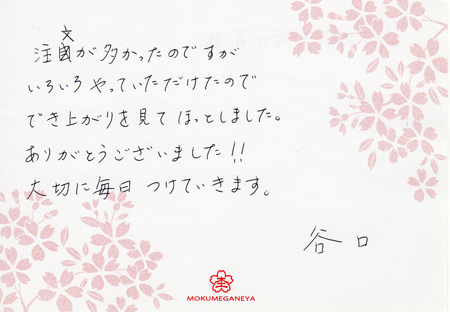 注文が多かったのですが
いろいろやっていただけたので
でき上がりを見てほっとしました。
ありがとうございました!!
大切に毎日つけていきます。
谷口
MOKUMEGANEYA